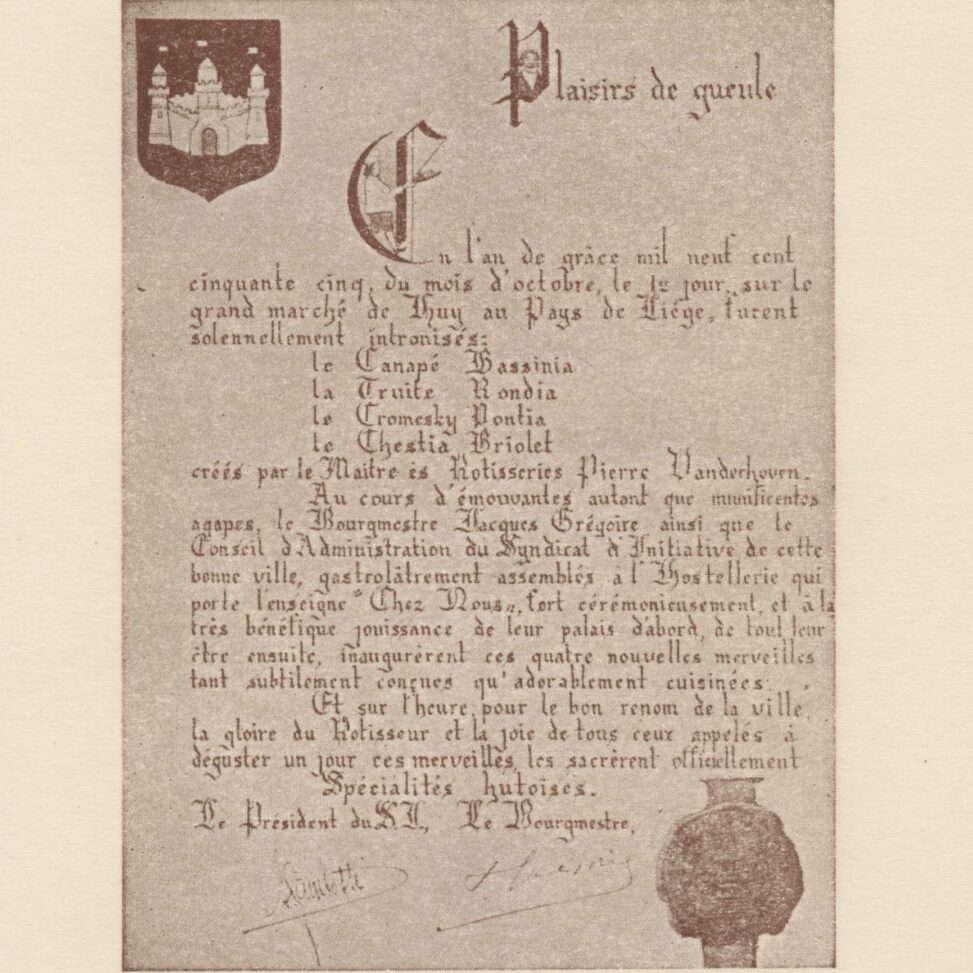 Plaisirs de gueule
En l'an de grâce mil neuf cent
cinquante cinq, du mois d'octobre, le 12 jour, sur le
grand marché de Huy au Pays de Liége, furent
solennellement intronisés:
le Canapé Bassinia
la Truite Rondia
le Cromesky Pontia
le Chestia Briolet
créés par le Maitre ès Rotisseries Pierre Vanderhoven.
Au cours d'émouvantes autant que munificentes
agapes, le Bourgmestre Jacques Grégoire ainsi que le
Conseil d'Administration du Syndicat d'Initiative de cette
bonne ville, gastrolâtrement assemblés à l'Hostellerie qui
porte l'enseigne "Chez Nous", fort cérémonieusement, et à la
très bénéfique jouissance de leur palais d'abord, de tout leur
être ensuite, inaugurèrent ces quatre nouvelles merveilles
tant subtilement conçues qu'adorablement cuisinées.
Et sur l'heure, pour le bon renom de la ville,
la gloire du Rotisseur et la joie de tous ceux appelés à
déguster un jour ces merveilles, les sacrèrent officiellement
Spécialités hutoises.
Le Président du S.I., Le Bourgmestre,